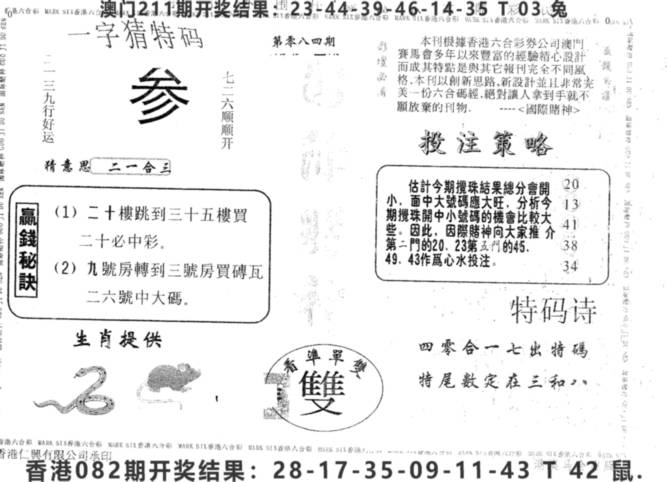 澳门211期开奖结果：23-44-39-46-14-35 T 03 兔
一字猜特码
第零八四期
参
二一三九行好运
七二六顺顺开
猜意思 二一合三
本刊根據香港六合彩券公司澳門
賽馬會多年以來豐富的經驗精心設計
而成其特點是與其它報刊完全不同風
格,本刊以創新思路,新設計並且非常完
美一份六合碼經,絕對讓人拿到手就不
願放棄的刊物. ----<國際賭神>
投注策略
估計今期攪珠結果總分會開
小, 面中大號碼應大旺, 分析今
期攪珠開中小號碼的機會比較大
些。因此, 因際賭神向大家推介
第二門的20. 23第五門的45.
49. 43作爲心水投注。
20
13
41
38
34
贏錢秘訣
(1) 二十樓跳到三十五樓買
二十必中彩.
(2) 九號房轉到三號房買磚瓦
二六號中大碼。
生肖提供
香準單雙
雙
特码诗
四零合一七出特碼
特尾數定在三和八
香港仁興有限公司承印
香港082期开奖结果：28-17-35-09-11-43 T 42 鼠.